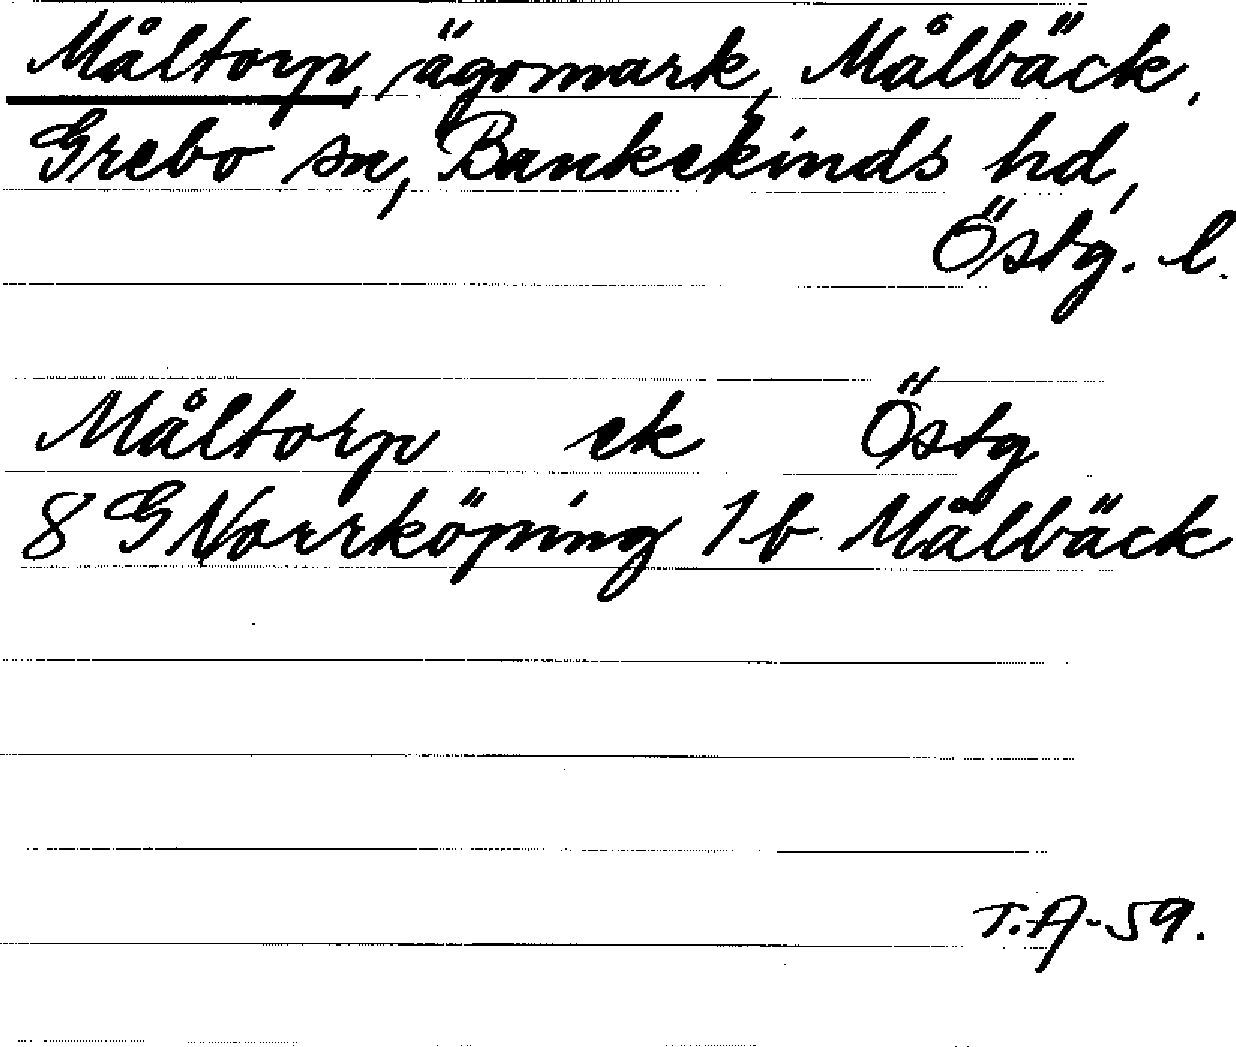 Måltorp, ägomark, Målbäck,
Grebo sn, Bankekinds hd,
Östg. l.
Måltorp ek Östg
8 G Norrköping 1 b Målbäck
T.A-59.